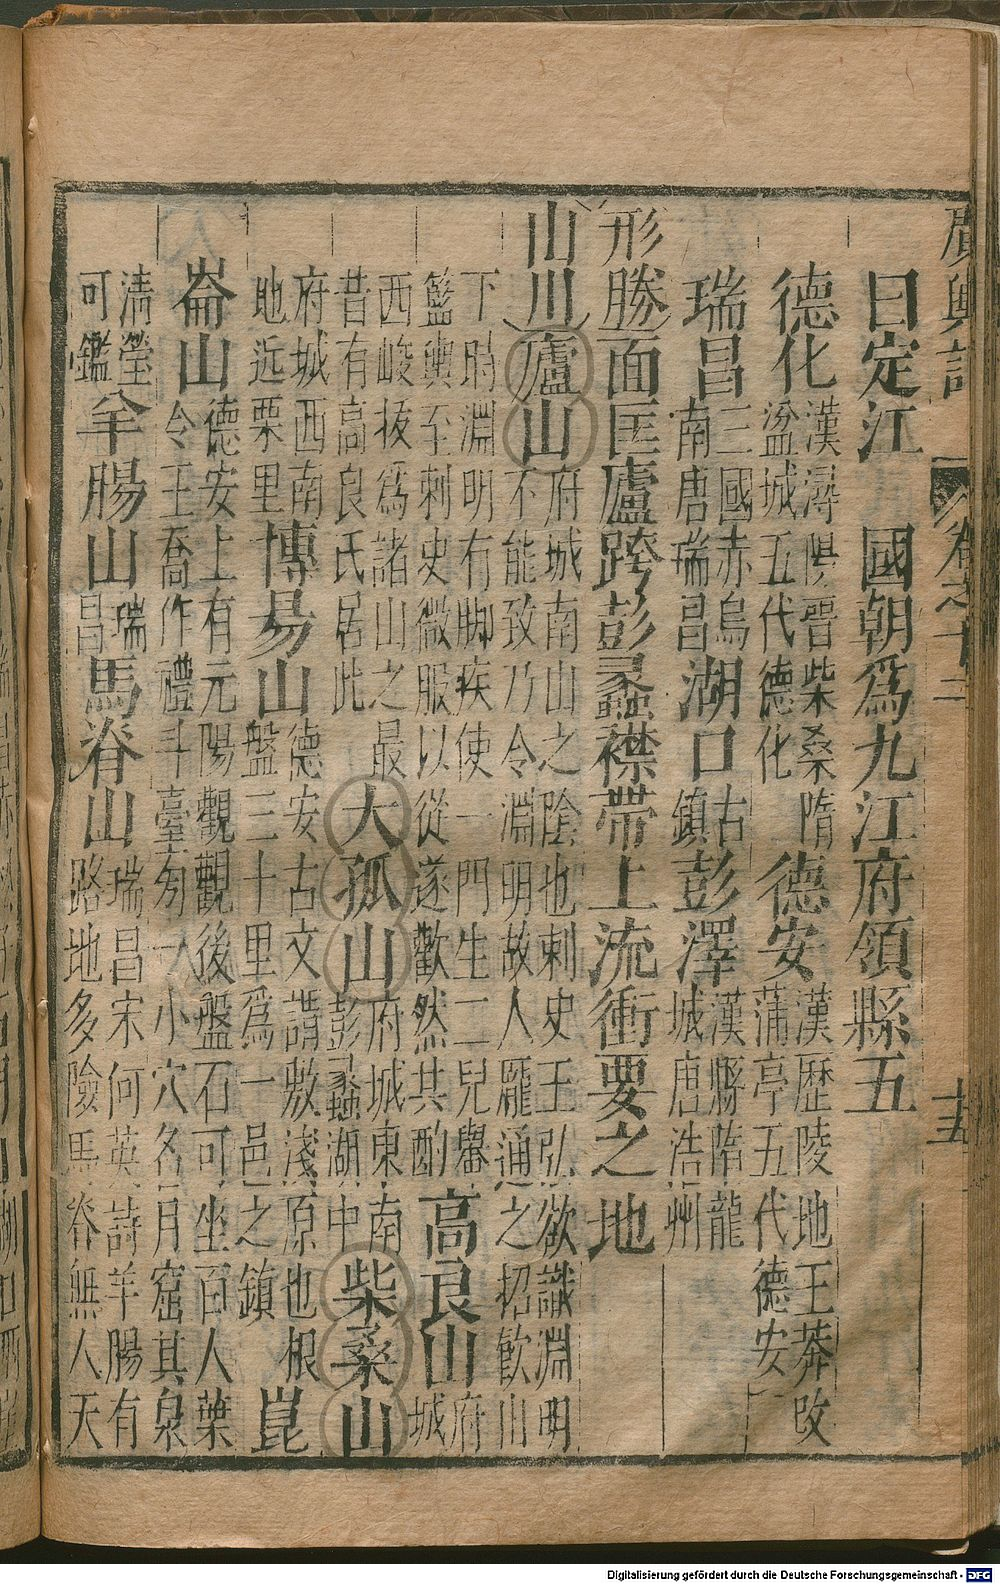 廣輿記 卷之十二 十五
曰定江 國朝爲九江府領縣五
德化 漢潯陽晋柴桑隋
湓城五代德化
德安 漢歷陵地王莽改
蒲亭五代德安
瑞昌 三國赤烏
南唐瑞昌
湖口 古
鎮
彭澤 漢縣隋龍
城唐浩州
形勝 面匡廬跨彭蠡襟帶上流衝要之地
山川 廬山 府城南山之陰也刺史王弘欲識淵明
不能致乃令淵明故人龐通之招飲山
下時淵明有脚疾使一門生二兒轝
籃輿至刺史微服以從遂歡然共酌
高良山 府
城
西峻拔爲諸山之最
昔有高良氏居此
大孤山 府城東南
彭蠡湖中
柴桑山
府城西南
地近栗里
博昜山 德安古文謂敷淺原也根
盤三十里爲一邑之鎮
崑
崙山 德安上有元陽觀觀後盤石可坐百人葉
令王喬作禮斗臺刱一小穴名月窟其泉
清瑩
可鑑
羊腸山 瑞
昌
馬脊山 瑞昌宋何英詩羊腸有
路地多險馬脊無人天
Digitalisierung gefördert durch die Deutsche Forschungsgemeinschaft - DFG